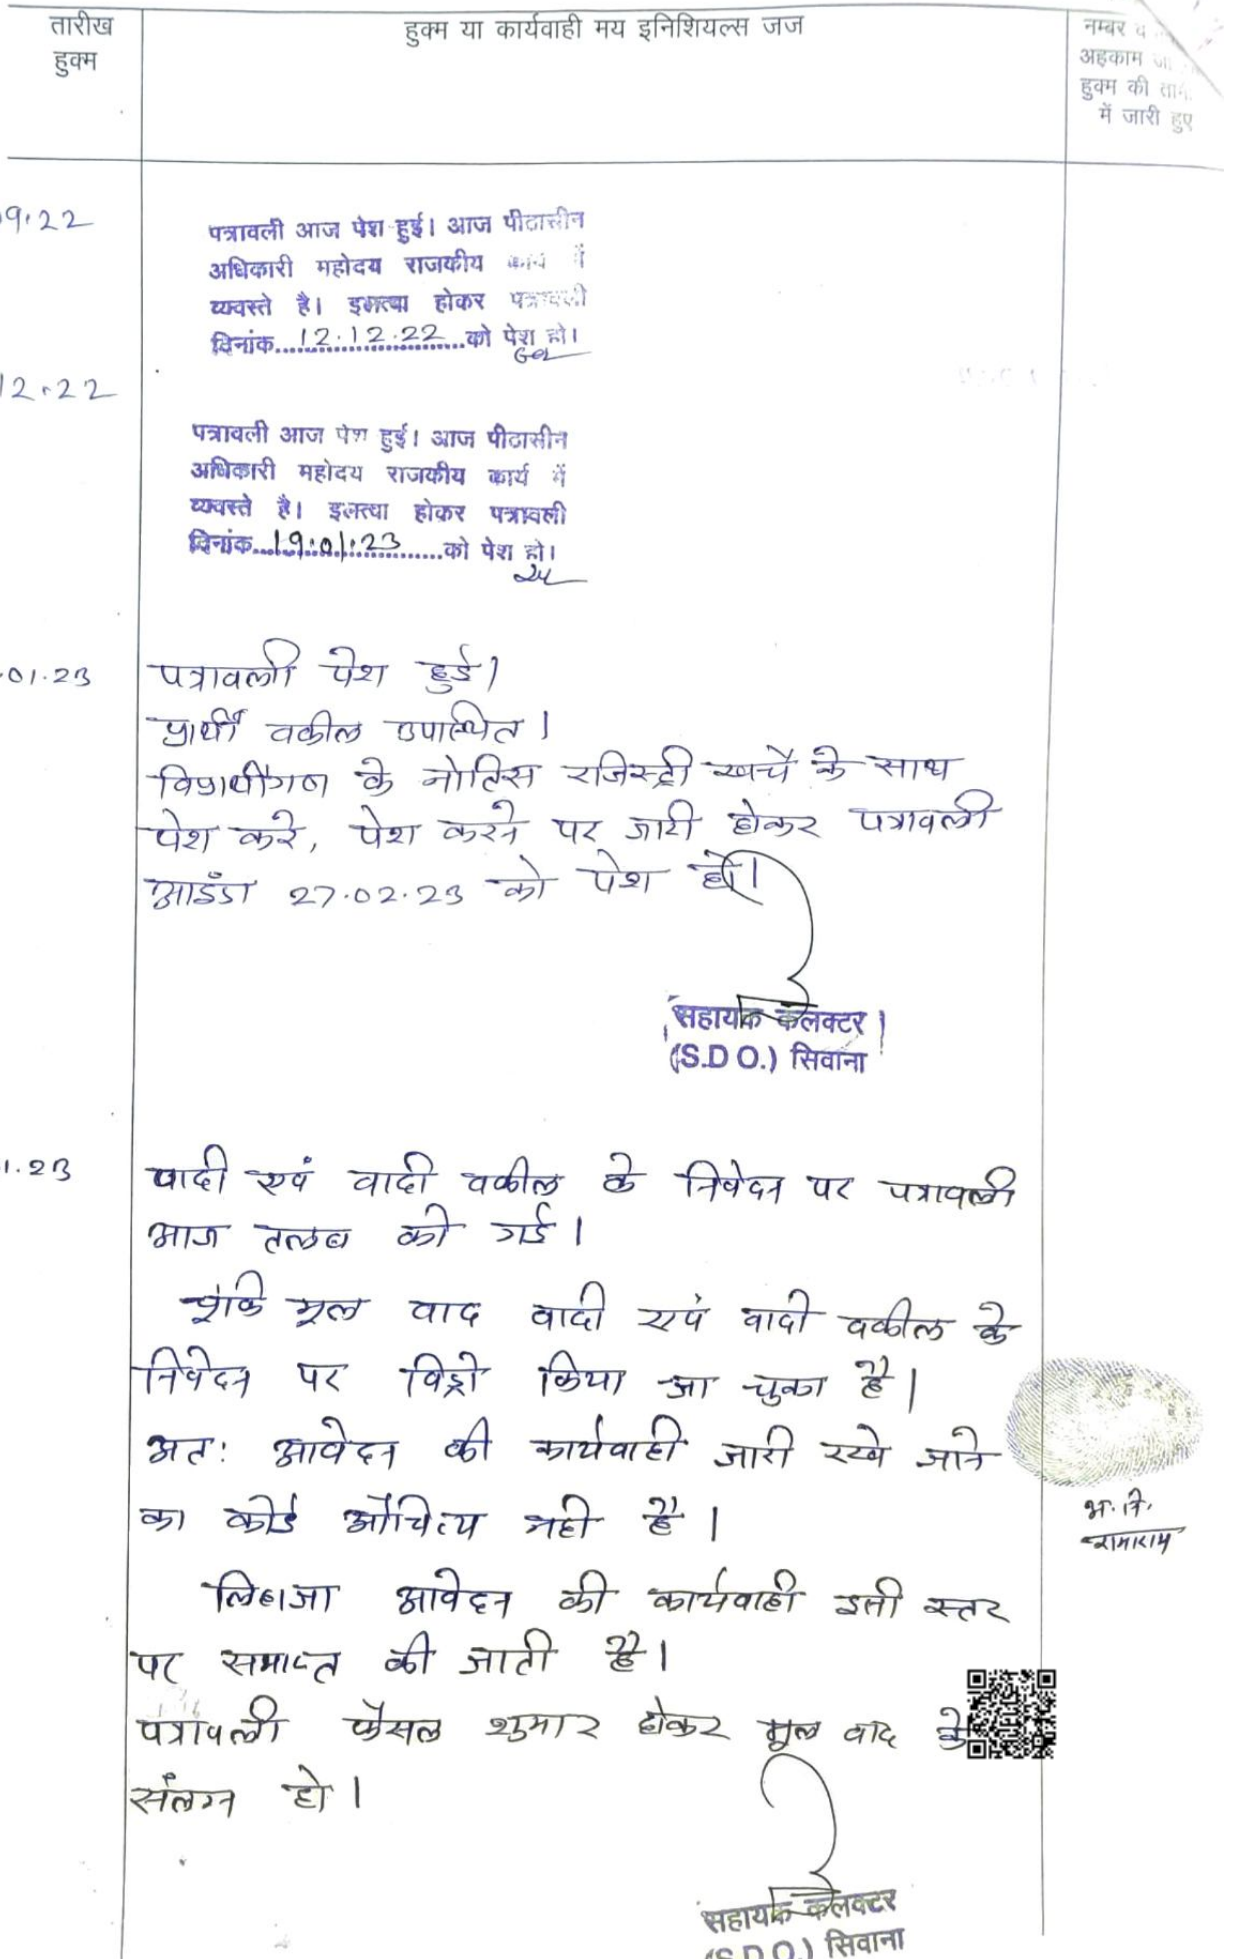 तारीख
हुक्म
हुक्म या कार्यवाही मय इनिशियल्स जज
नम्बर व
अहकाम जा
हुक्म की तामी
में जारी हुए
9.22
पत्रावली आज पेश हुई। आज पीठासीन
अधिकारी महोदय राजकीय कार्य में
व्यवस्ते है। इलत्वा होकर पत्रावली
दिनांक....12.12.22....को पेश हो।
12.22
पत्रावली आज पेश हुई। आज पीठासीन
अधिकारी महोदय राजकीय कार्य में
व्यवस्ते है। इलत्वा होकर पत्रावली
दिनांक....19.01.23....को पेश हो।
.01.23
पत्रावली पेश हुई।
प्रार्थी वकील उपास्थित।
विप्रार्थीगण के नोटिस रजिस्ट्री खर्चे के साथ
पेश करे, पेश करने पर जारी होकर पत्रावली
आईंदा 27.02.23 को पेश हो।
सहायक कलक्टर
(S.D O.) सिवाना
1.23
वादी एवं वादी वकील के निवेदन पर पत्रावली
आज तलब की गई।
चूंकि मूल वाद वादी एवं वादी वकील के
निवेदन पर विड्रो किया जा चुका है।
अतः आवेदन की कार्यवाही जारी रखे जाने
का कोई औचित्य नही है।
लिहाजा आवेदन की कार्यवाही इसी स्तर
पर समाप्त की जाती है।
पत्रावली फैसल शुमार होकर मूल वाद के
संलग्न हो।
अ.नि.
रामाराम
सहायक कलक्टर
(S.D O.) सिवाना